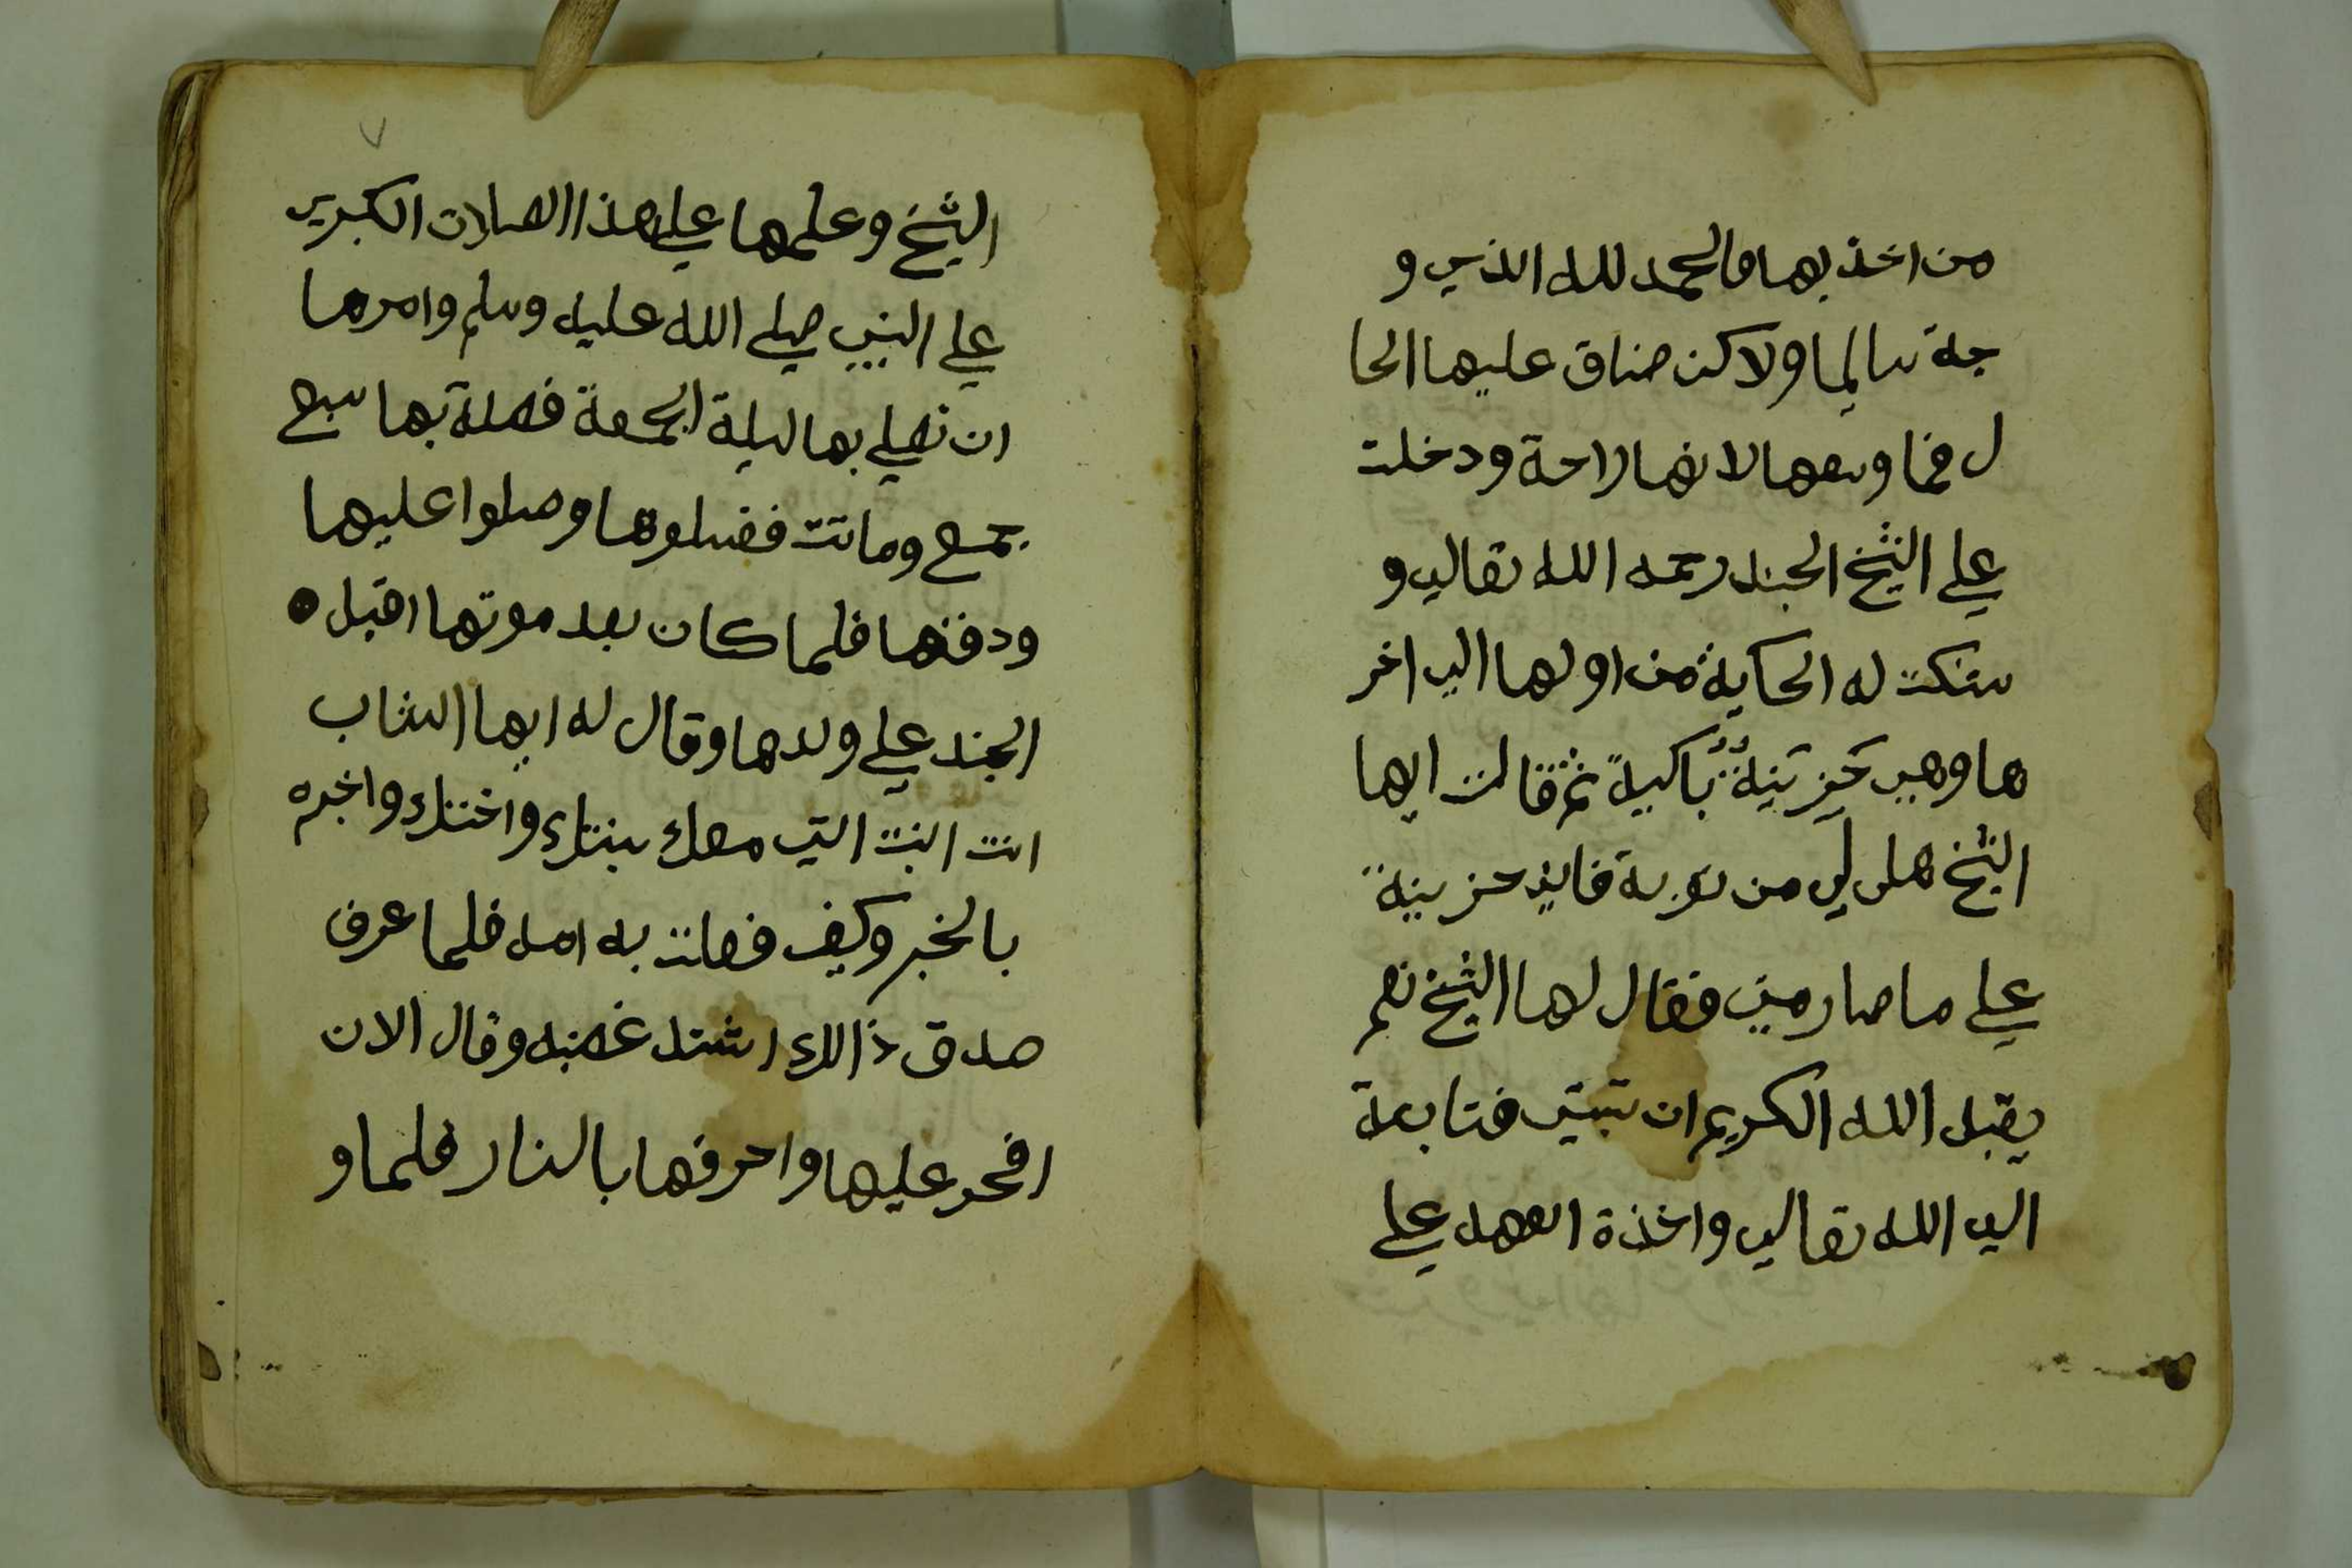 من اخذ بها فالحمد لله الذي و
جة سالما ولاكن ضاق عليها الحا
ل فما وسعها لانها راحة ودخلت
علي الشيخ الجند رحمه الله تعالي و
ستكت له الحكاية من اولها الي اخر
ها وهي حَزِينَةٌ بَاكيةً ثم قالت ايها
الشيخ هل لي من توبة فاني حزينة
علي ما صار مني فقال لها الشيخ نعم
يقبل الله الكريم ان تبتي فتابة
الي الله تعالي واخذة العهد علي
٧
الشيخ وعلمها علي هذا الصلات الكبري
علي النبي صلي الله عليه وسلم وامرها
ان تصلي بها ليلة الجمعة فصلة بها سبع
جمع وماتت فغسلوها وصلوا عليها
ودفنها فلما كان بعد موتها اقبل
الجند علي ولدها وقال له ايها الشاب
انت البنت التي معك بنتك واختك واخبره
بالخبر وكيف فعلت به امه فلما عرف
صدق ذالك اشتد غضبه وقال الان
افحر عليها واحرقها بالنار فلما و